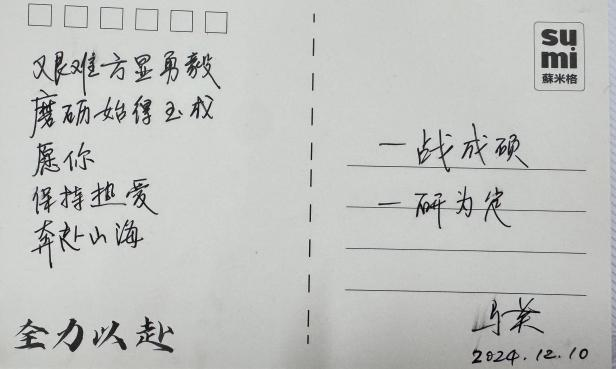 艰难方显勇毅
磨砺始得玉成
愿你
保持热爱
奔赴山海
全力以赴
su
mi
蘇米格
一战成硕
一研为定
马英
2024.12.10